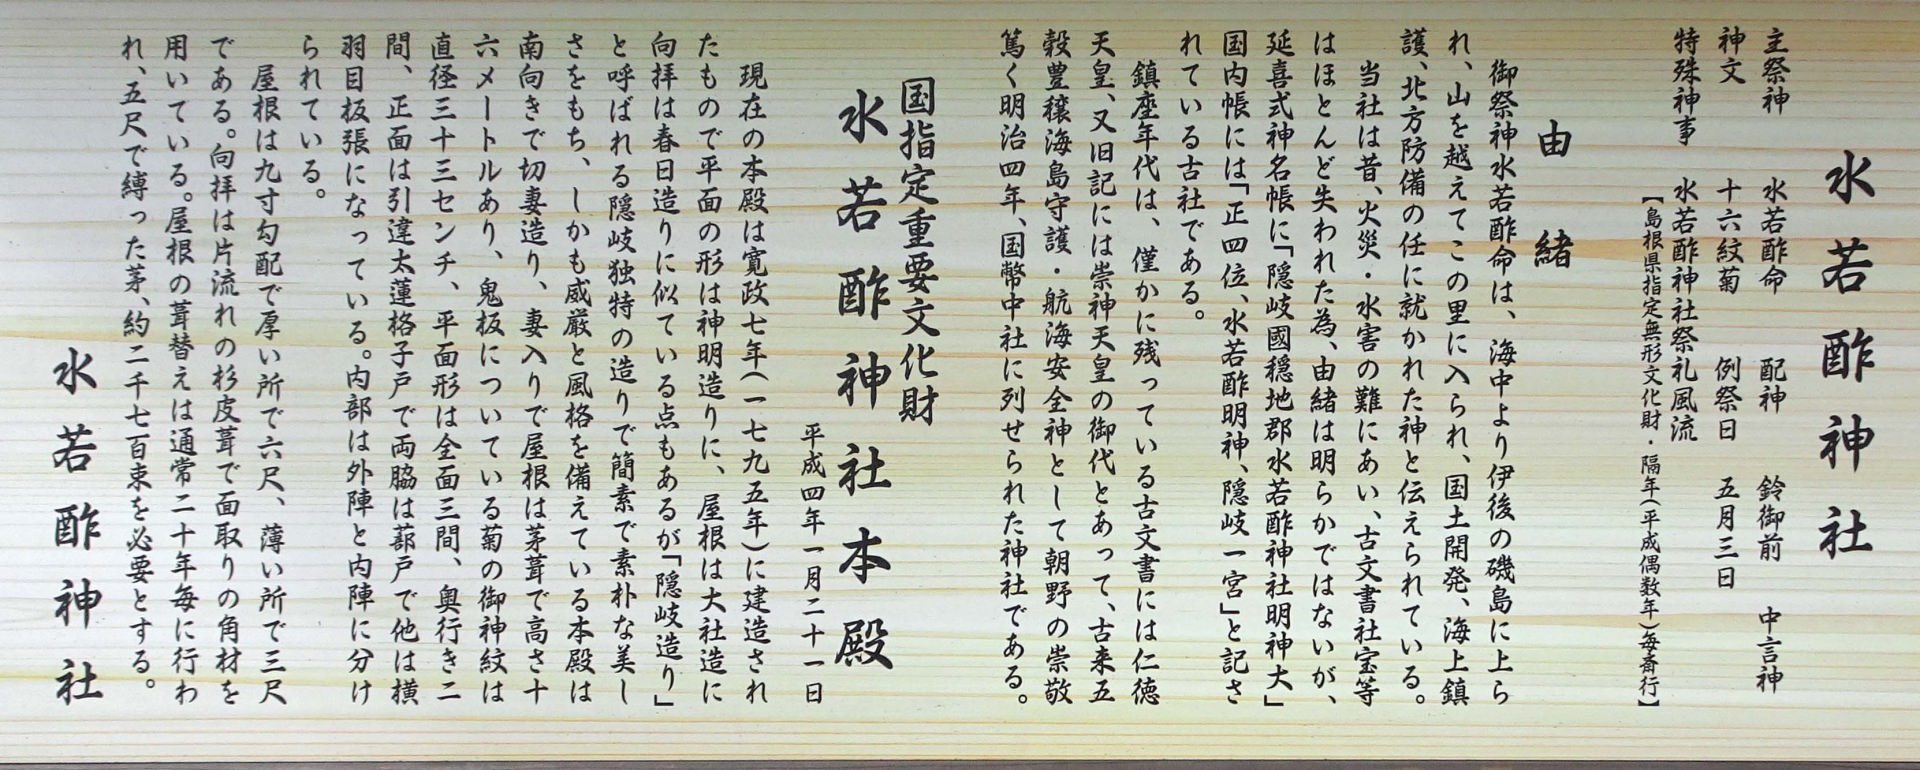 水若酢神社
主祭神　水若酢命　配神　鈴御前　中言神
神文　十六紋菊　例祭日　五月三日
特殊神事　水若酢神社祭礼風流
【島根県指定無形文化財・隔年(平成偶数年)毎斎行】
由緒
御祭神水若酢命は、海中より伊後の磯島に上ら
れ、山を越えてこの里に入られ、国土開発、海上鎮
護、北方防備の任に就かれた神と伝えられている。
当社は昔、火災・水害の難にあい、古文書社宝等
はほとんど失われた為、由緒は明らかではないが、
延喜式神名帳に「隠岐國穏地郡水若酢神社明神大」
国内帳には「正四位、水若酢明神、隠岐一宮」と記さ
れている古社である。
鎮座年代は、僅かに残っている古文書には仁徳
天皇、又旧記には崇神天皇の御代とあって、古来五
穀豊穣海島守護・航海安全神として朝野の崇敬
篤く明治四年、国幣中社に列せられた神社である。
国指定重要文化財
水若酢神社本殿
平成四年一月二十一日
現在の本殿は寛政七年(一七九五年)に建造され
たもので平面の形は神明造りに、屋根は大社造に
向拝は春日造りに似ている点もあるが「隠岐造り」
と呼ばれる隠岐独特の造りで簡素で素朴な美し
さをもち、しかも威厳と風格を備えている本殿は
南向きで切妻造り、妻入りで屋根は茅葺で高さ十
六メートルあり、鬼板についている菊の御神紋は
直径三十三センチ、平面形は全面三間、奥行き二
間、正面は引違太蓮格子戸で両脇は蔀戸で他は横
羽目板張になっている。内部は外陣と内陣に分け
られている。
屋根は九寸勾配で厚い所で六尺、薄い所で三尺
である。向拝は片流れの杉皮葺で面取りの角材を
用いている。屋根の葺替えは通常二十年毎に行わ
れ、五尺で縛った茅、約二千七百束を必要とする。
水若酢神社